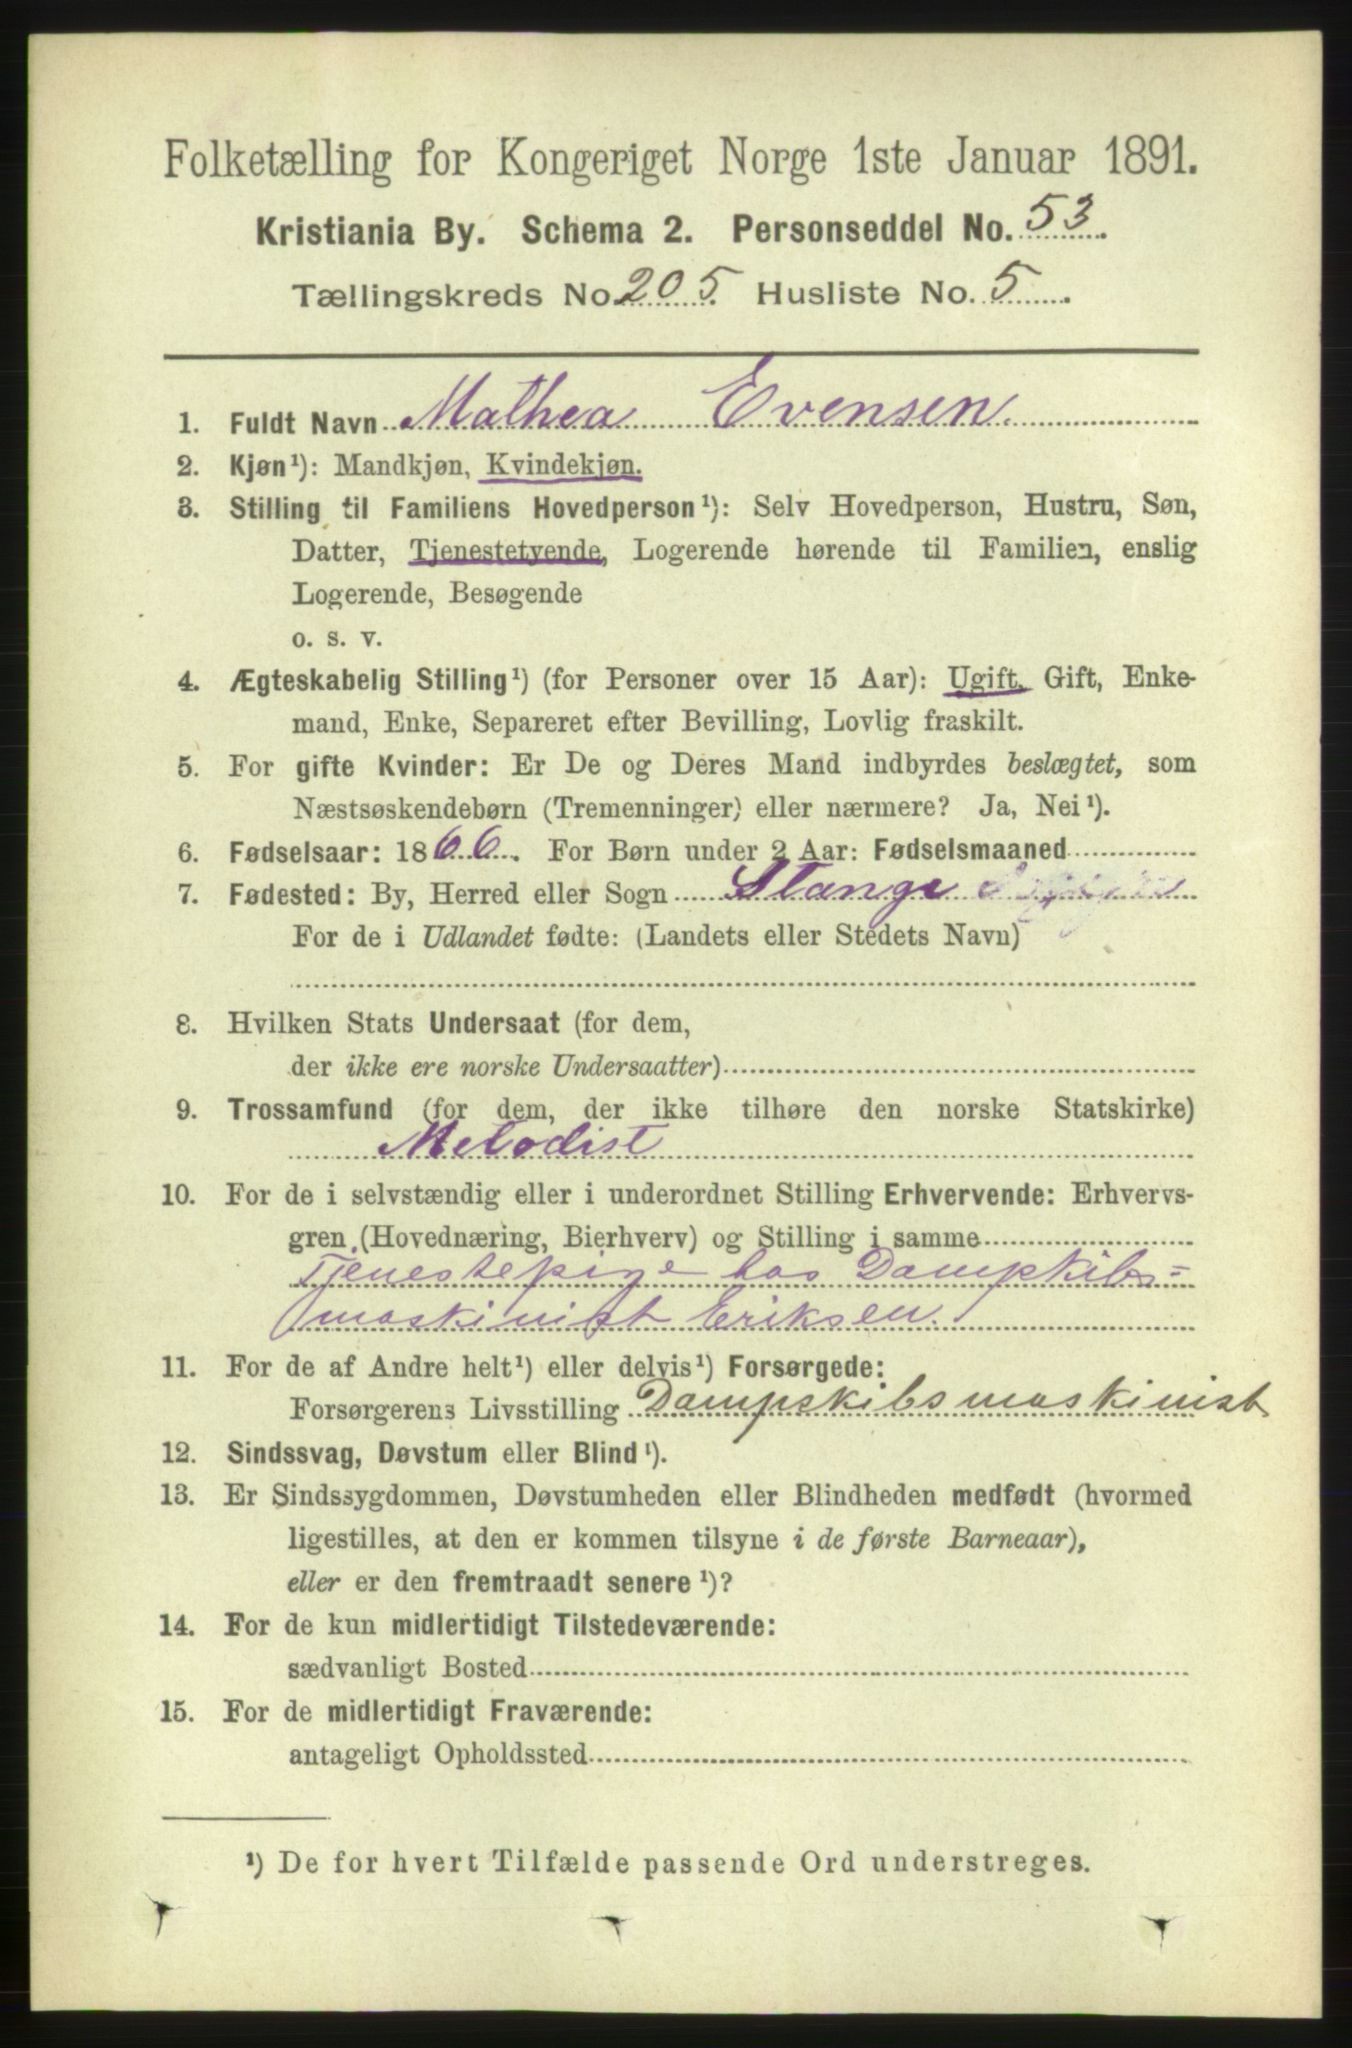 Folketælling for Kongeriget Norge 1ste Januar 1891.
Kristiania By. Schema 2. Personseddel No. 53.
Tællingskreds No. 205. Husliste No. 5.
1. Fuldt Navn Mathea Evensen.
2. Kjøn¹): Mandkjøn, Kvindekjøn.
3. Stilling til Familiens Hovedperson¹): Selv Hovedperson, Hustru, Søn,
Datter, Tjenestetyende, Logerende hørende til Familien, enslig
Logerende, Besøgende
o. s. v.
4. Ægteskabelig Stilling¹) (for Personer over 15 Aar): Ugift, Gift, Enke-
mand, Enke, Separeret efter Bevilling, Lovlig fraskilt.
5. For gifte Kvinder: Er De og Deres Mand indbyrdes beslægtet, som
Næstsøskendebørn (Tremenninger) eller nærmere? Ja, Nei¹).
6. Fødselsaar: 1866. For Børn under 2 Aar: Fødselsmaaned
7. Fødested: By, Herred eller Sogn Stange
For de i Udlandet fødte: (Landets eller Stedets Navn)
8. Hvilken Stats Undersaat (for dem,
der ikke ere norske Undersaatter)
9. Trossamfund (for dem, der ikke tilhøre den norske Statskirke)
Metodist
10. For de i selvstændig eller i underordnet Stilling Erhvervende: Erhvervs-
gren (Hovednæring, Bierhverv) og Stilling i samme
Tjenestepige hos Dampkibs=
maskinist Eriksen.
11. For de af Andre helt¹) eller delvis¹) Forsørgede:
Forsørgerens Livsstilling Dampskibsmaskinist
12. Sindssvag, Døvstum eller Blind¹).
13. Er Sindssygdommen, Døvstumheden eller Blindheden medfødt (hvormed
ligestilles, at den er kommen tilsyne i de første Barneaar),
eller er den fremtraadt senere¹)?
14. For de kun midlertidigt Tilstedeværende:
sædvanligt Bosted
15. For de midlertidigt Fraværende:
antageligt Opholdssted
¹) De for hvert Tilfælde passende Ord understreges.